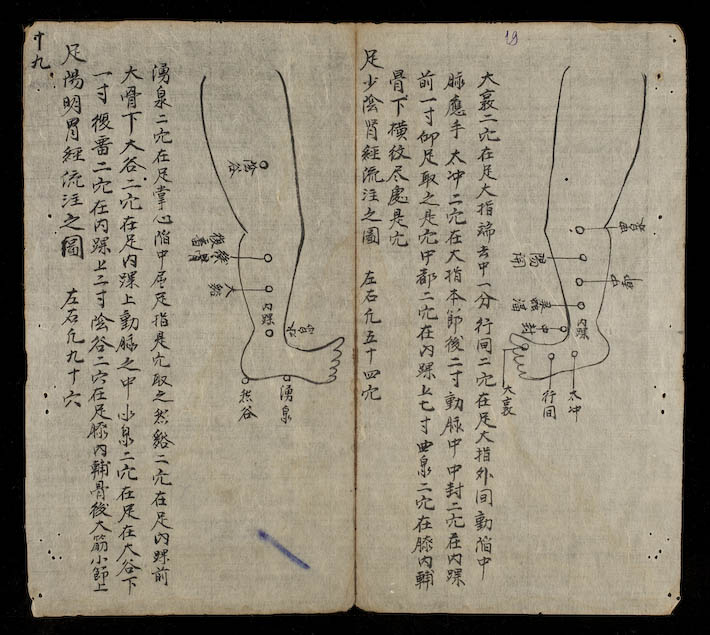 19
大衮二穴在足大指端去中一分行间二穴在足大指外间動陷中
脉應手 太冲二穴在大指本節後二寸動脉中 中封二穴在内踝
前一寸仰足取之是穴中都二穴在内踝上七寸曲泉二穴在膝内輔
骨下横紋尽處是穴
足少陰肾經流注之圖 左右凢五十四穴
内踝
中封
大衮
行间
太冲
湧泉二穴在足掌心陷中屈足指是穴取之然谿二穴在足内踝前
大骨下大谷二穴在足内踝上動脉之中水泉二穴在足在大谷下
一寸復畱二穴在内踝上二寸陰谷二穴在足膝内輔骨後大筋小節上
足陽明胃經流注之圖 左右凢九十六
陰谷
大谿
内踝
然谷
湧泉
十九